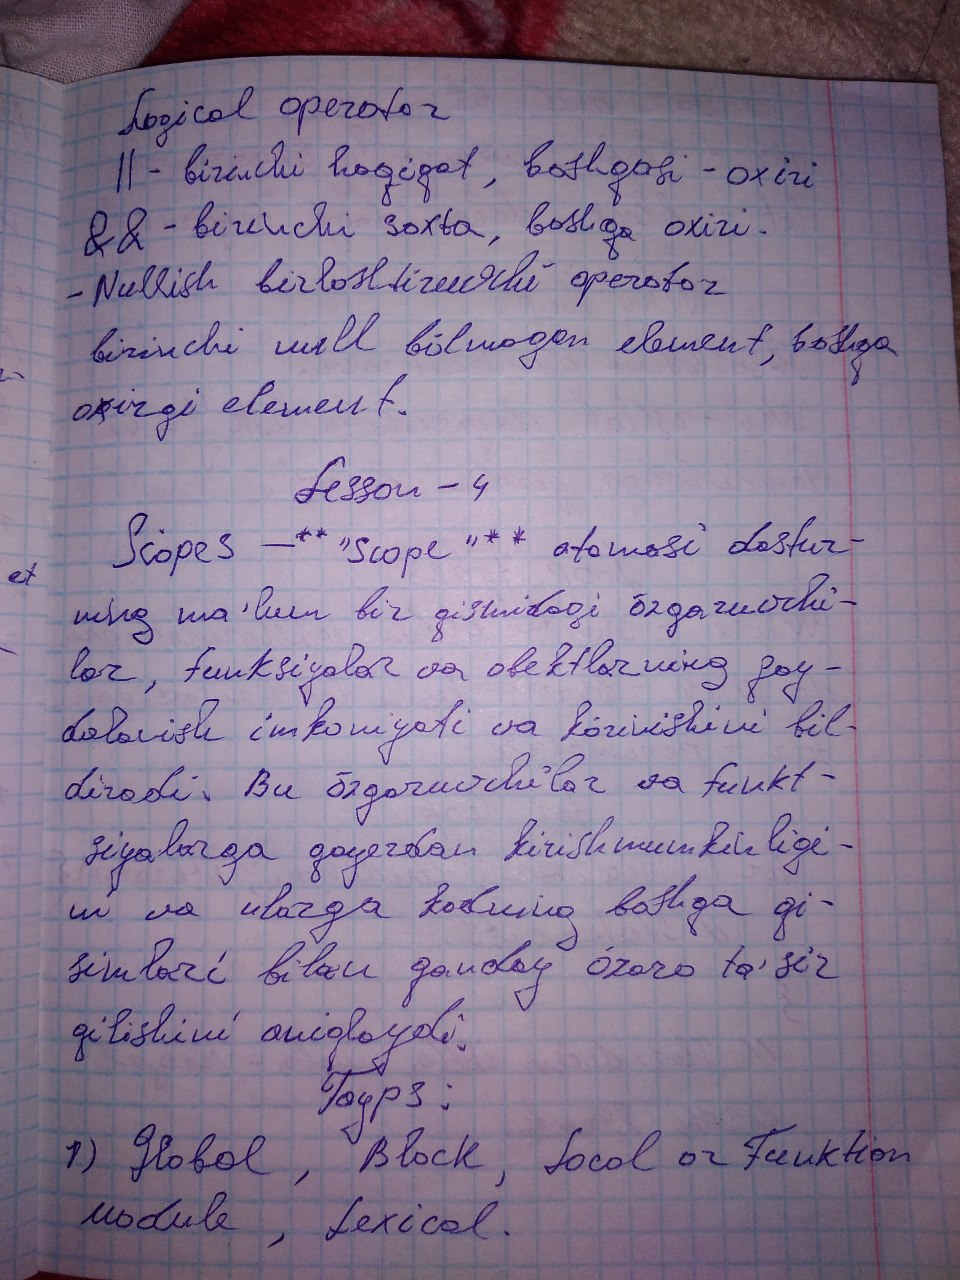 Logical operator
|| - birinchi haqiqat, boshqasi - oxiri
&& - birinchi soxta, boshqa oxiri.
- Nullish birlashtiruvchi operator
birinchi null bólmagan element, boshqa
oxirgi element.
Lesson - 4
Scopes - ** "Scope" ** atamasi dastur-
ning ma'lum bir qismidagi ózgaruvchi-
lar, funksiyalar va obektlarning foy-
dalanish imkoniyati va kórinishini bil-
diradi. Bu ózgaruvchilar va funkt-
siyalarga qayerdan kirish mumkinligi-
ni va ularga kodning boshqa qi-
simlari bilan qanday ózaro ta'sir
qilishini aniqlaydi.
Tayps:
1) Global, Block, Local or Funktion
Module, Lexical.
et